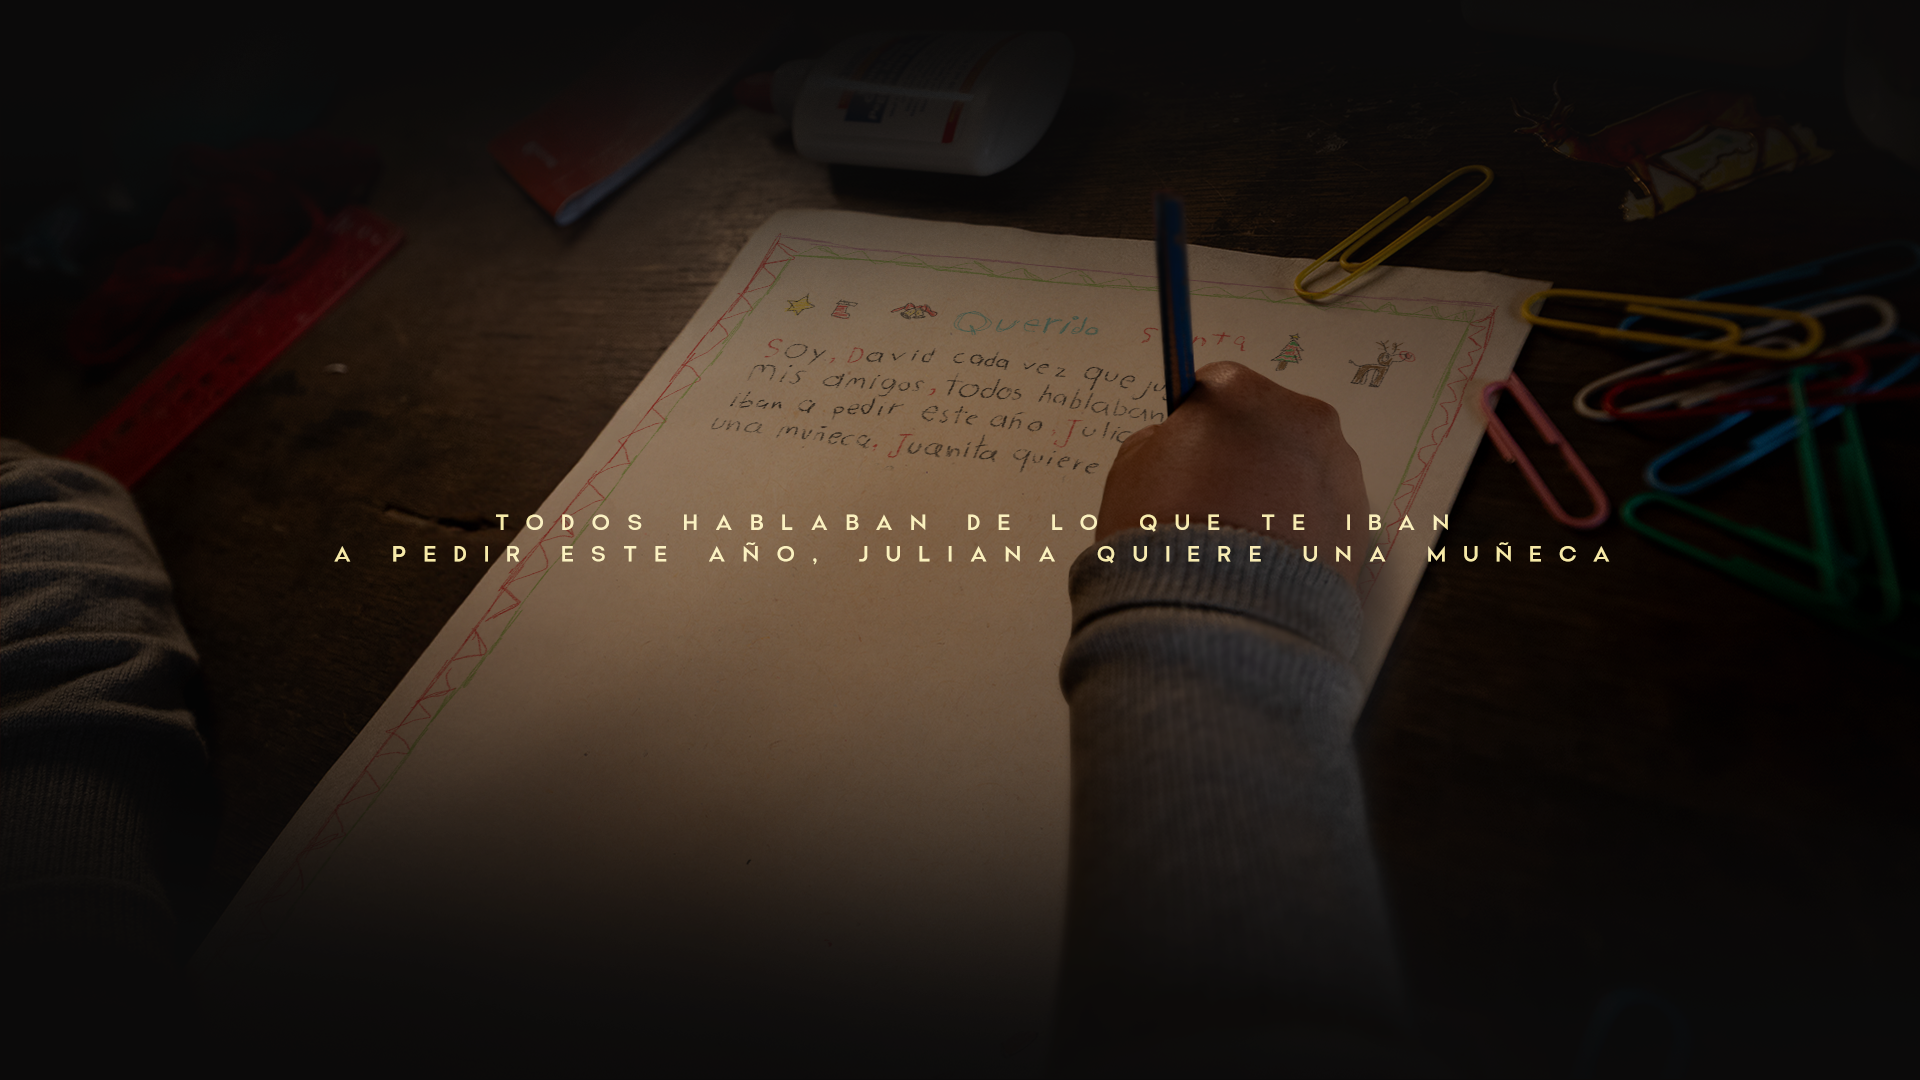 Querido Santa
Soy, David cada vez que
mis amigos, todos hablaban
iban a pedir este año. 
una muñeca. Juanita quiere
TODOS HABLABAN DE LO QUE TE IBAN
A PEDIR ESTE AÑO, JULIANA QUIERE UNA MUÑECA